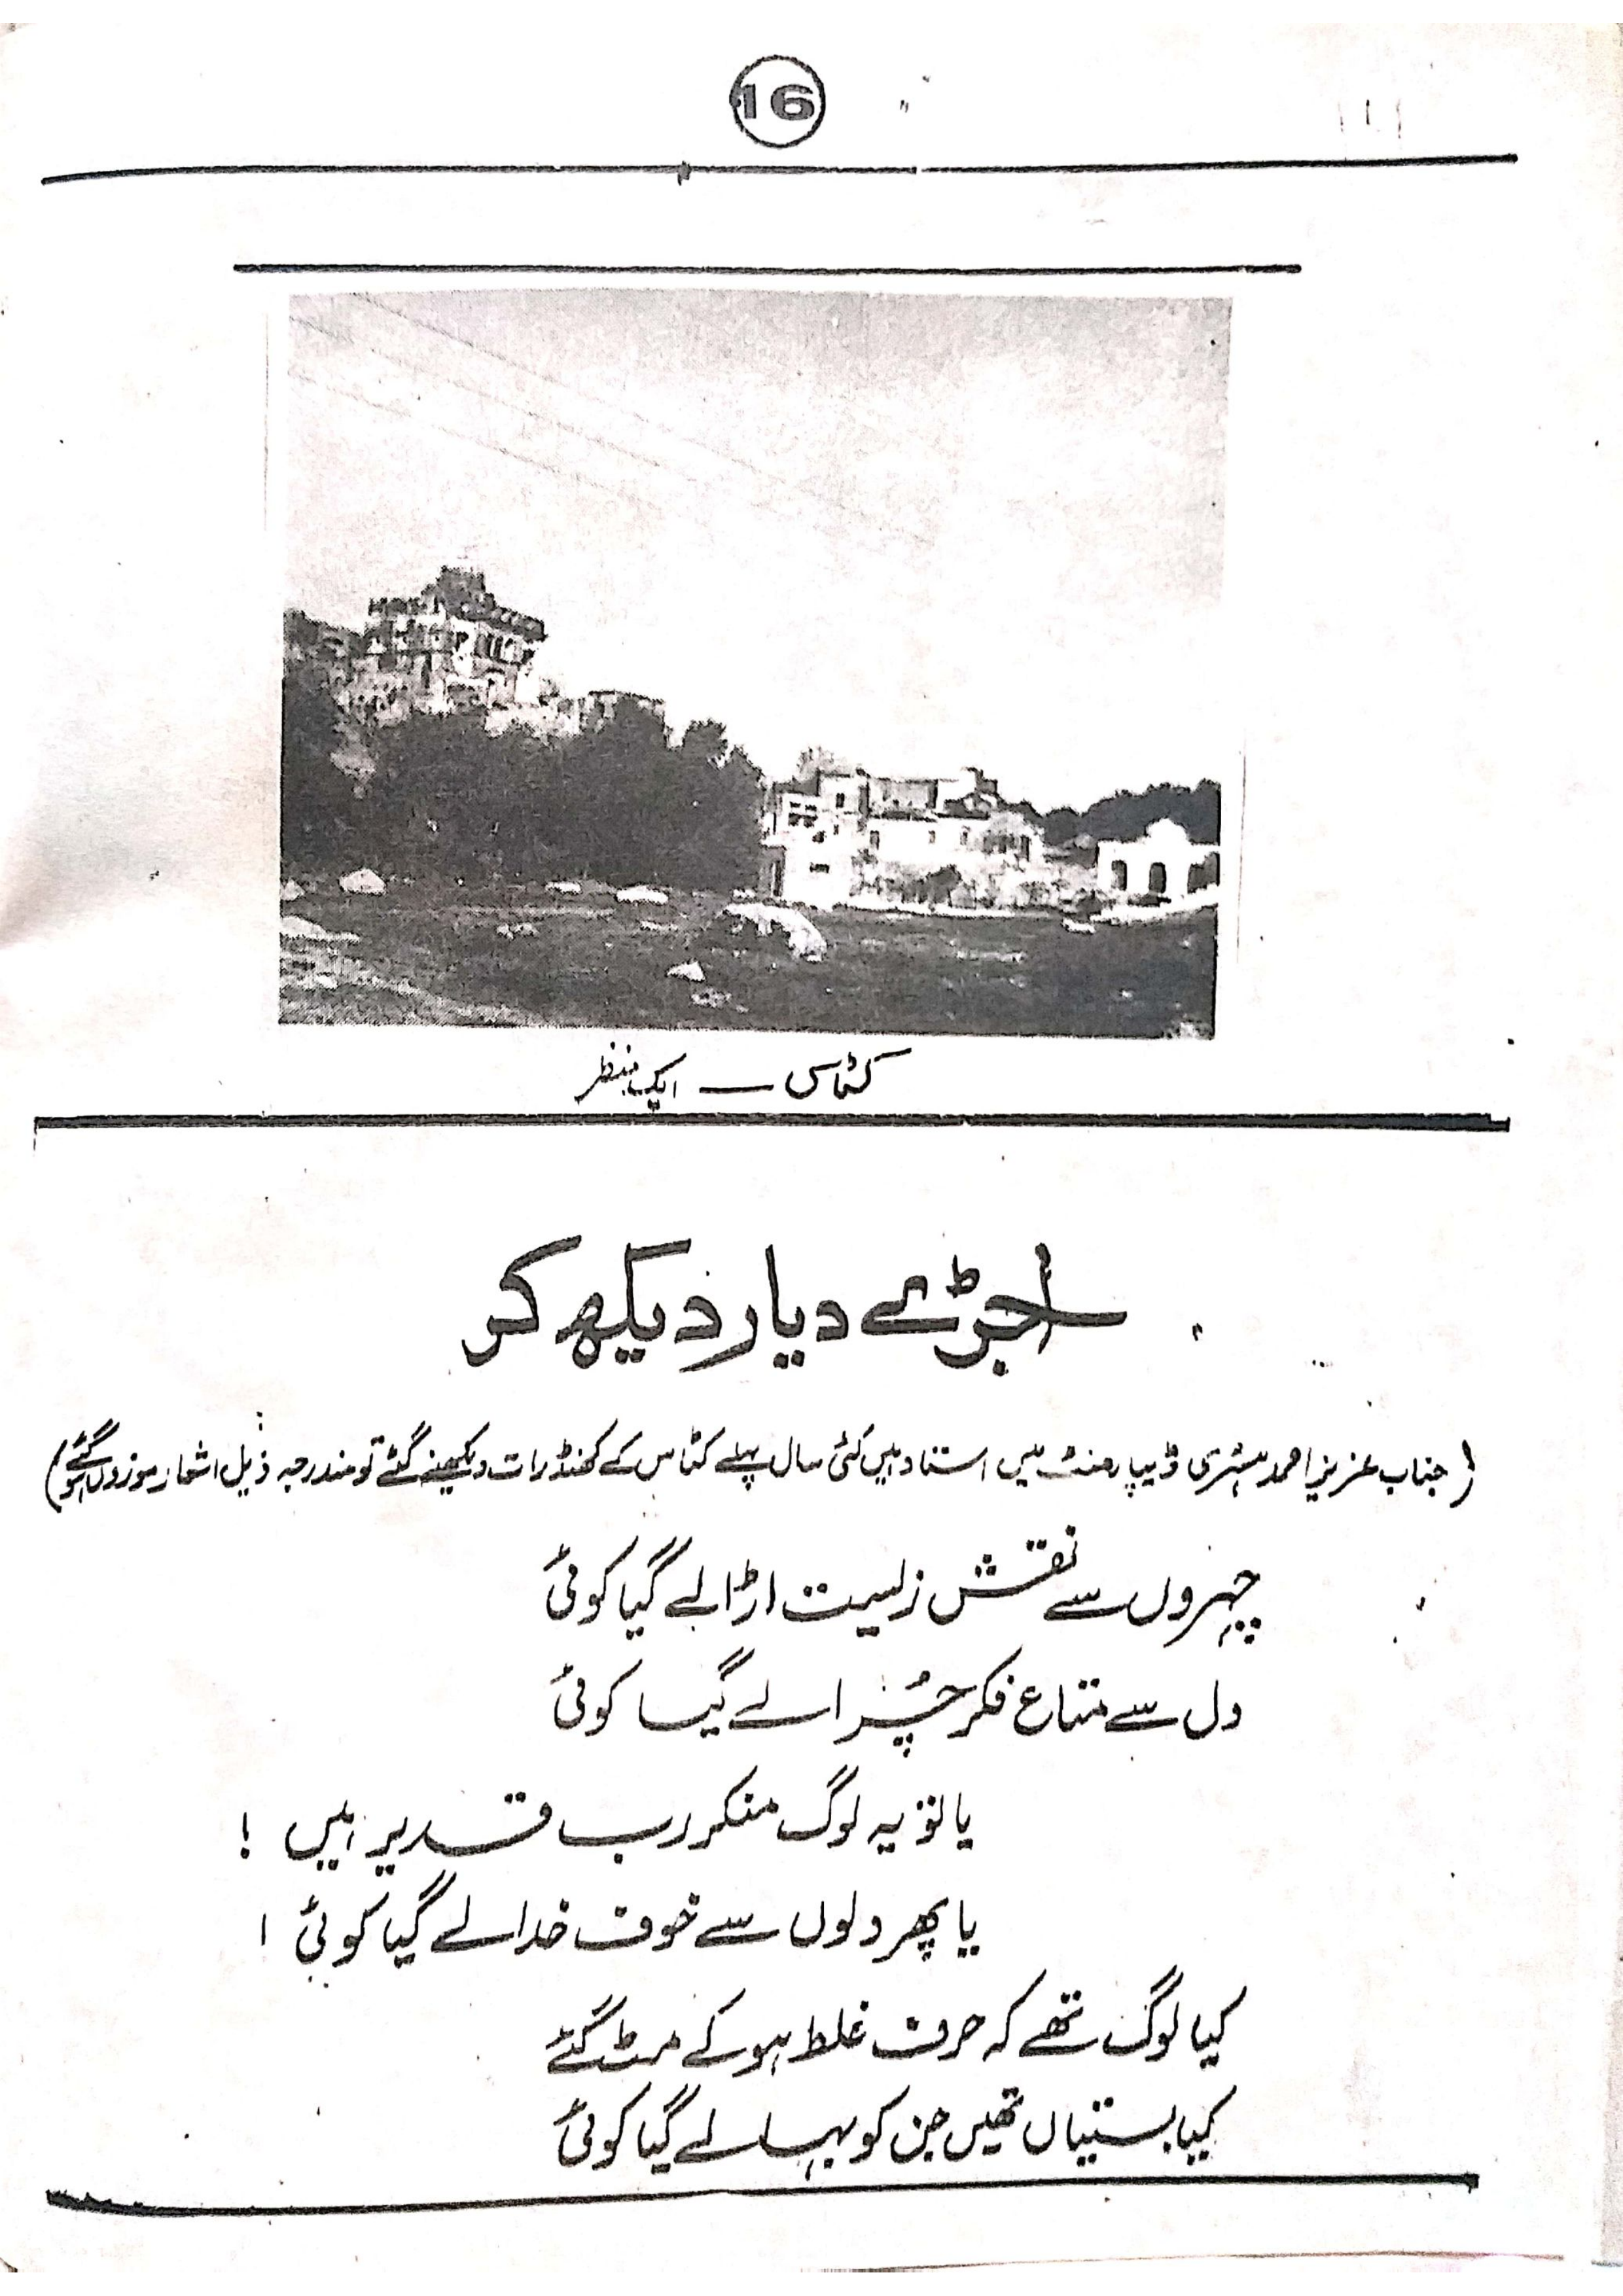 16
کٹاس — ایک منظر
اجڑے دیار دیکھ کر
(جناب عزیز احمد ہسٹری ڈیپارمنٹ میں استاد ہیں کئی سال پہلے کٹاس کے کھنڈرات دیکھنے گئے تو مندرجہ ذیل اشعار موزوں ہو گئے)
چہروں سے نقش زلیست اڑا لے گیا کوئی
دل سے متاع فکر چُرا لے گیا کوئی
یا تو یہ لوگ منکر رب قدیر ہیں !
یا پھر دلوں سے خوف خدا لے گیا کوئی !
کیا لوگ تھے کہ حرف غلط ہو کے مٹ گئے
کیا بستیاں تھیں جن کو بہا لے گیا کوئی